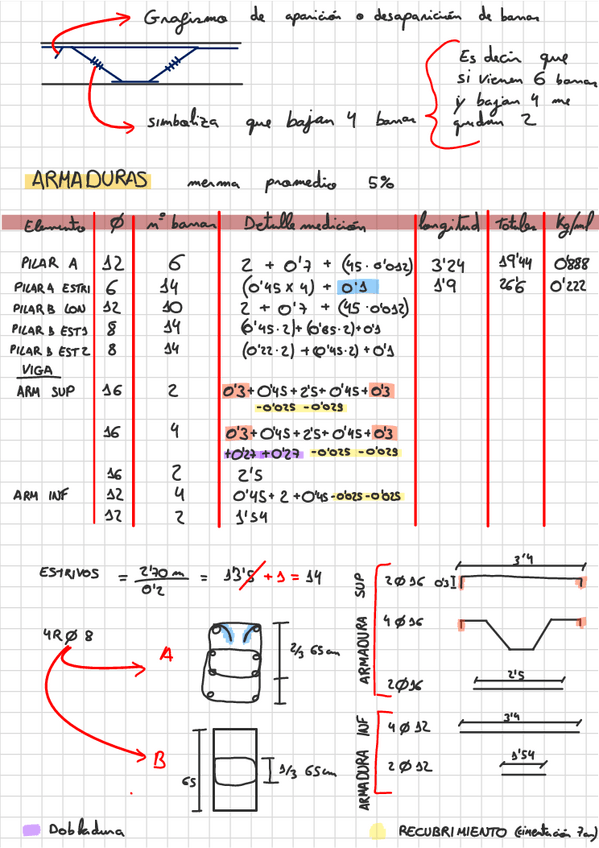 Grafismo de aparición o desaparición de barras
Es decir que
si vienen 6 barras
y bajan 4 me
quedan 2
simboliza que bajan 4 barras
ARMADURAS merma promedio 5%
Elemento Ø nº barras Detalle medición longitud Totales Kg/ml
PILAR A 12 6 2 + 0'7 + (45·0'012) 3'24 19'44 0'888
PILAR A ESTRI 6 14 (0'45 x 4) + 0'1 1'9 26'6 0'222
PILAR B LON 12 10 2 + 0'7 + (45·0'012)
PILAR B EST1 8 14 (0'45·2)+(0'65·2)+0'1
PILAR B EST2 8 14 (0'22·2)+(0'45·2)+0'1
VIGA
ARM SUP 16 2 0'3+0'45+2'5+0'45+0'3
-0'025 -0'025
16 4 0'3+0'45+2'5+0'45+0'3
+0'27 +0'27 -0'025 -0'025
16 2 2'5
ARM INF 12 4 0'45+2+0'45-0'025-0'025
12 2 1'54
ESTRIVOS = 2'70 m / 0'2 = 13'5 + 1 = 14
4RØ8
A
2/3 65cm
B
65
1/3 65cm
ARMADURA SUP
3'4
2Ø16 0'3
4Ø16
2'5
2Ø16
ARMADURA INF
3'4
4Ø12
1'54
2Ø12
Dobladura
RECUBRIMIENTO (cimentación 7cm)